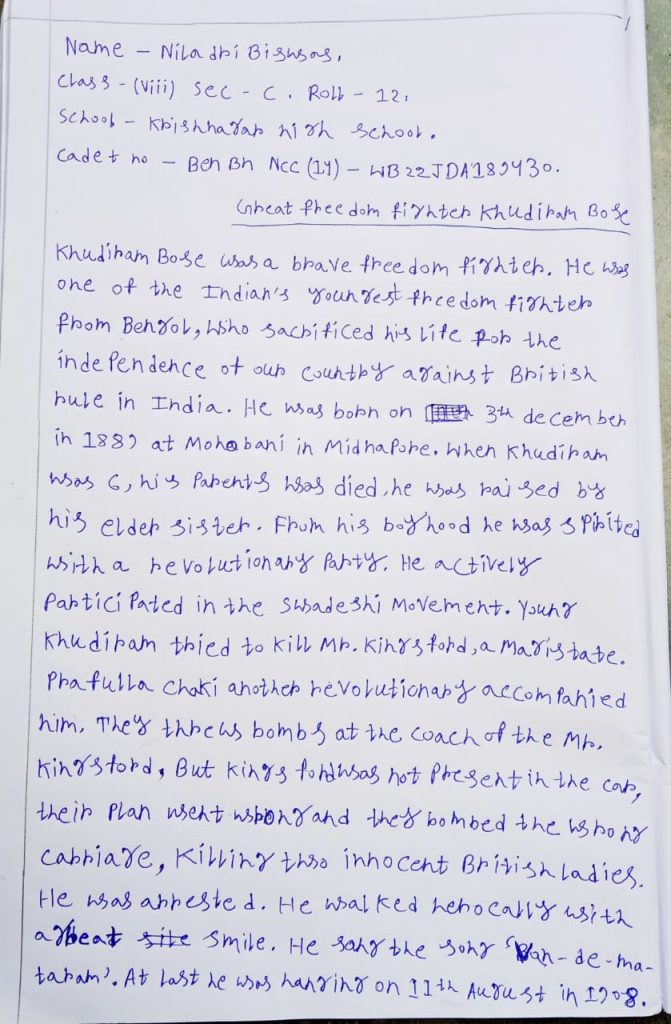 1
Name - Niladri Biswas,
Class - (viii) Sec - C. Roll - 12,
School - Krishnagar high school.
Cadet no - Ben Bn NCC (14) - WB22JDA189430.
Great freedom fighter Khudiram Bose
Khudiram Bose was a brave freedom fighter. He was
one of the Indian's youngest freedom fighter
from Bengol, who sacrificed his life for the
independence of our country against British
rule in India. He was born on 3th december
in 1889 at Mohobani in Midnapore. When Khudiram
was 6, his Parents was died, he was raised by
his elder sister. From his boyhood he was spirited
with a revolutionary Party. He actively
Participated in the Swadeshi Movement. Young
Khudiram tried to kill Mr. Kingsford, a Magistate.
Prafulla Chaki another revolutionary accompanied
him. They threw bombs at the coach of the Mr.
Kingsford, But Kings ford was not Present in the car,
their Plan went wrong and they bombed the wrong
carriage, Killing two innocent British ladies.
He was arrested. He walked herocally with
a great site smile. He sang the song 'Van-de-ma-
taram'. At last he was hanging on 11th August in 1908.